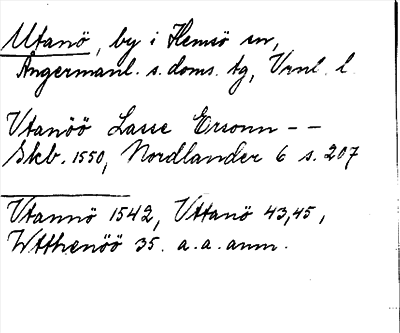 Utanö, by i Hemsö sn,
Ångermanl. s. doms. tg, Vrnl. l.
Vtanöö Lasse Ersonn - -
Skb. 1550, Nordlander 6 s. 207
Vtannö 1542, Vttanö 43,45,
Wtthenöö 35. a.a. anm.